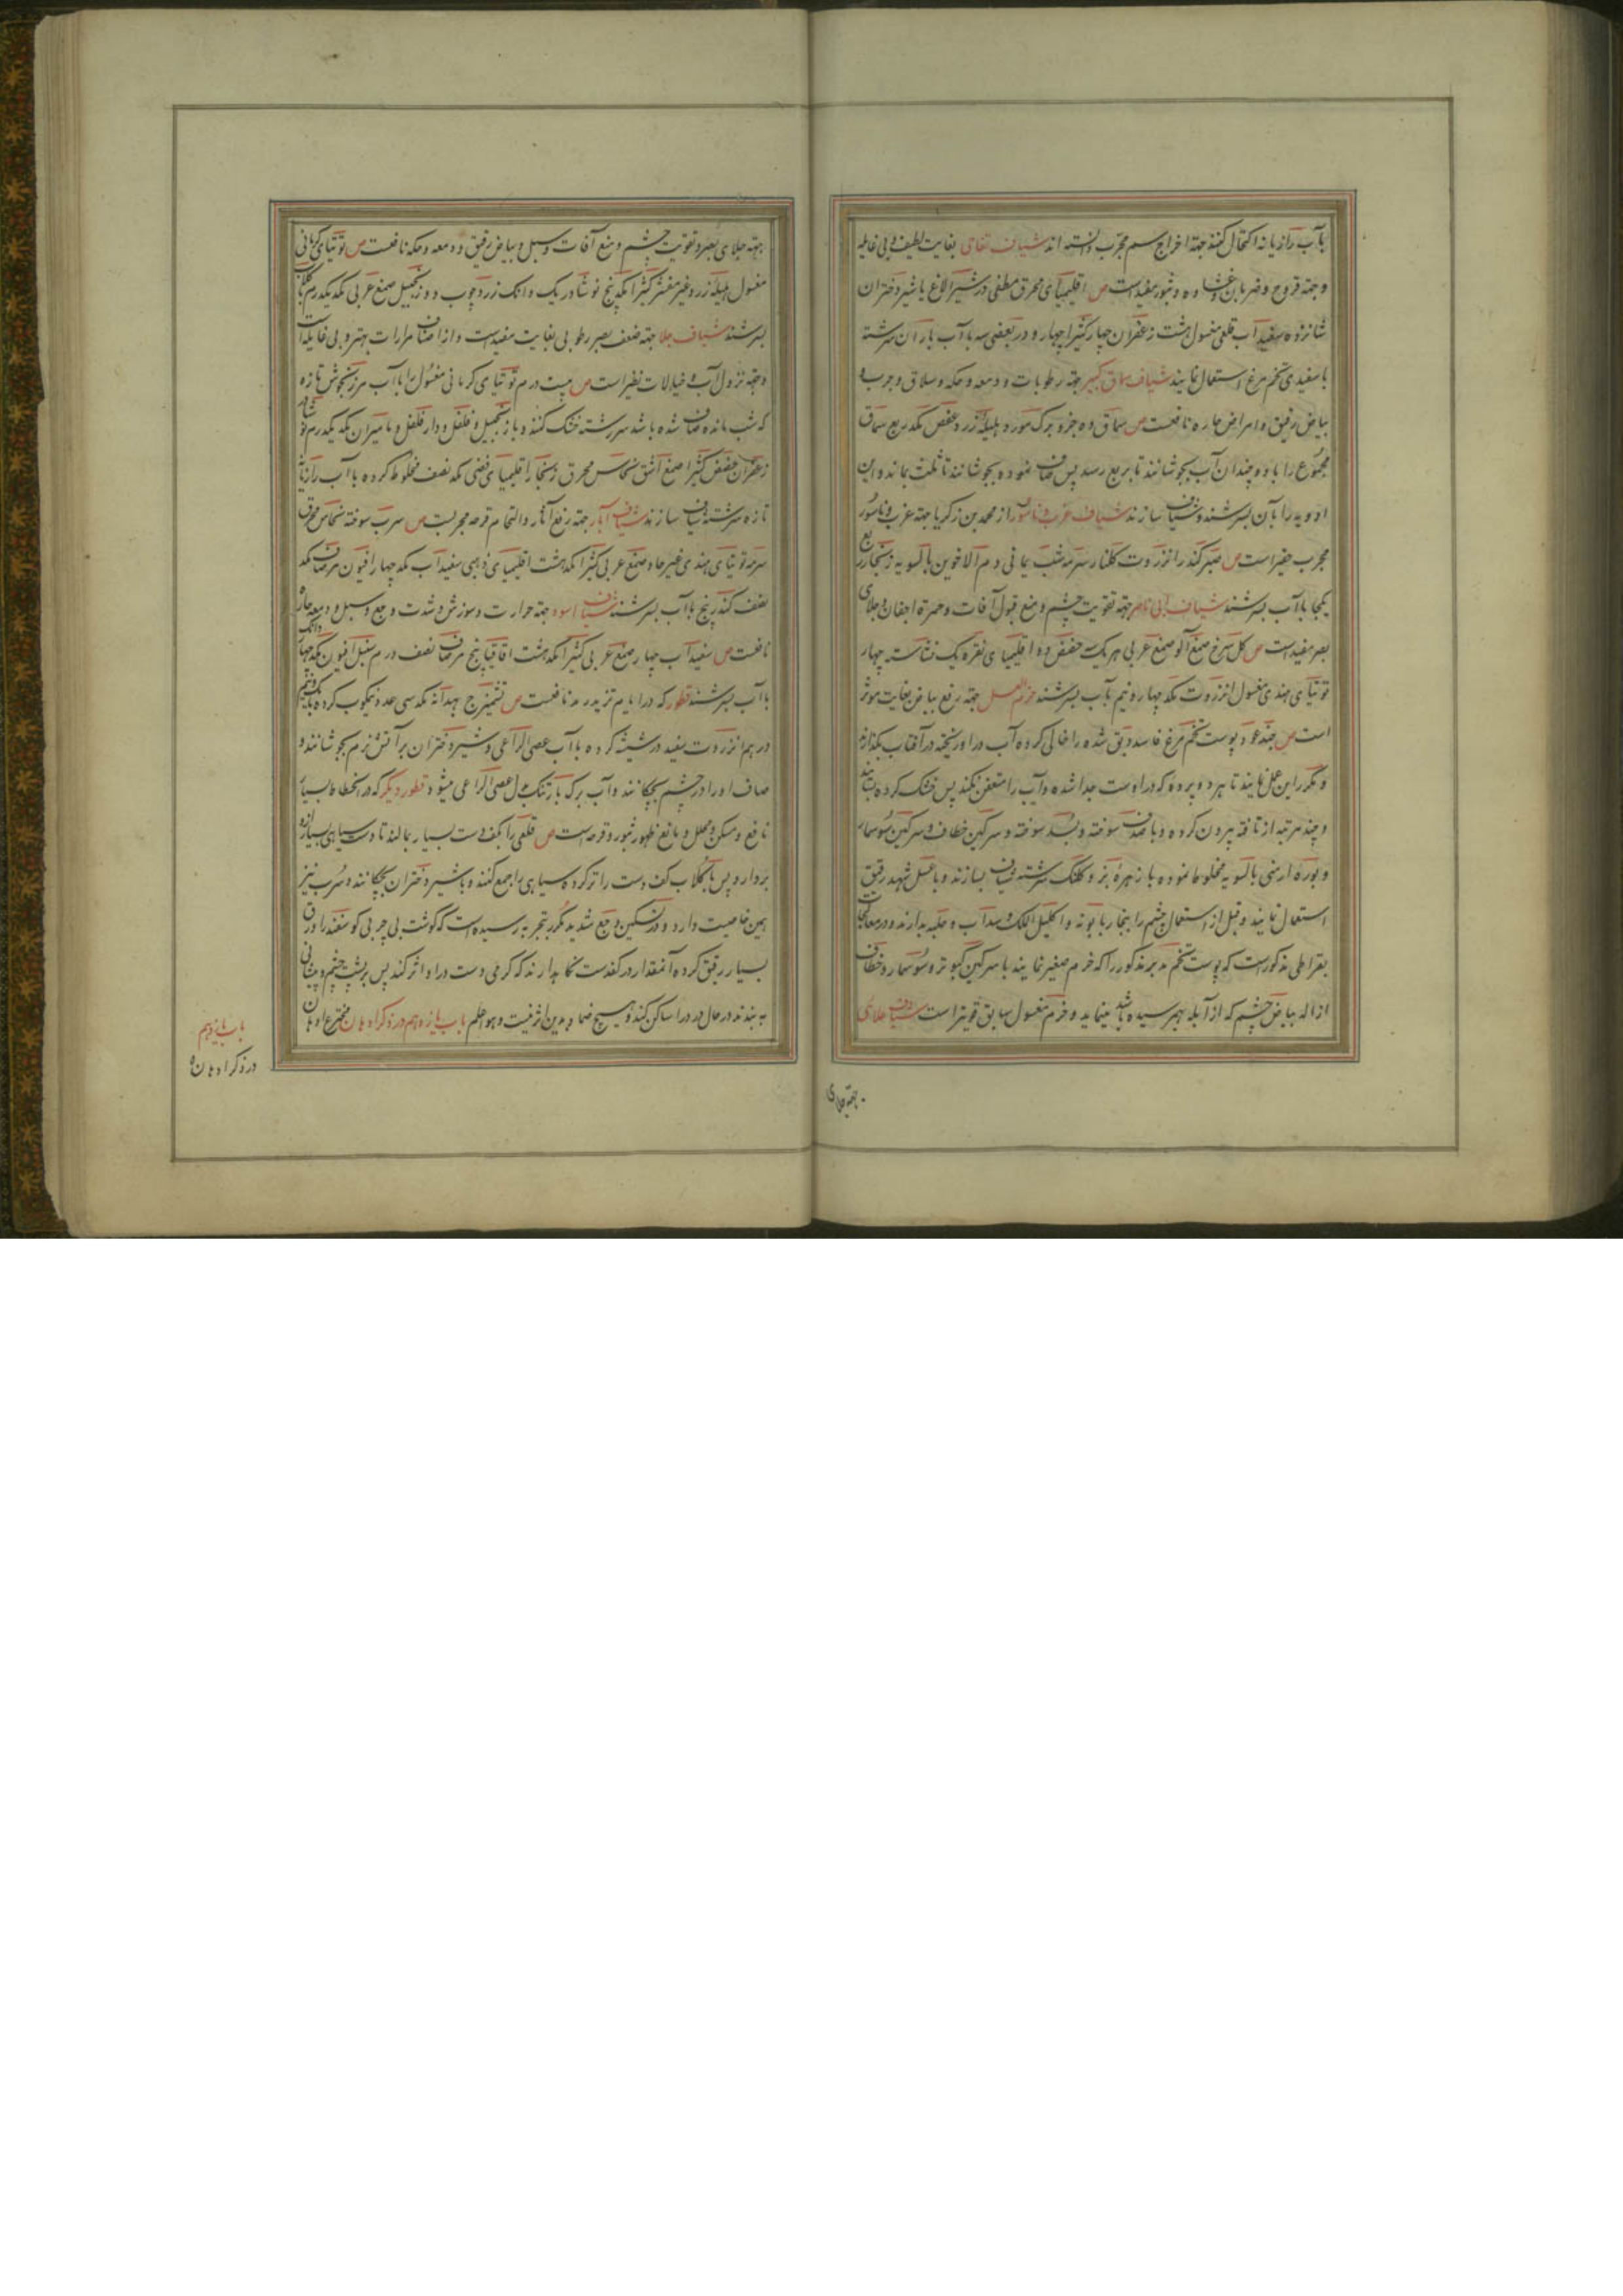 بآب رازیانه اکتحال کنند جهة اخراج سم مجرب دانسته اند شیاف تفاحی بغایت لطیف و بی غایله
و جهة قروح و ضربان و غشاوه و بثور مفیدست ص اقلیمیای محرق مطفی در شیر الاغ یا شیر دختران
شانزده سفیدآب قلعی مغسول هشت زعفران چهار کتیرا چهار و در بعضی سه با آب باران سرشته
با سفیدی تخم مرغ استعمال نمایند شیاف سماق کبیر جهة رطوبات و دمعه و حکه و سلاق و جرب و
بیاض رقیق و امراض حاره نافعست ص سماق ده جزو برک مورد هلیله زرد عفص مکد ربع سماق
مجموع را با ده چندان آب بجوشانند تا بربع رسد پس صاف نموده بجوشانند تا ثلث بماند و این
ادویه را بآن بسرشند و شیاف سازند شیاف غرب و ناسور از محمد بن زکریا جهة غرب و ناسور
مجرب حقیر است ص صبر کندر انزروت کلنار سرمه شب یمانی دم الاخوین بالسویه زنجار ربع
یکجا با آب بسرشند شیاف جهة تقویت چشم و منع قبول آفات و حمرة اجفان و جلای
بصر مفیدست ص کل سرخ صمغ آلو صمغ عربی هر یک سه حضض ده اقلیمیای نقره یک نشاسته چهار
توتیای هندی مغسول انزروت مکد چهار و نیم بآب بسرشند خرم العسل جهة رفع بیاض بغایت موثر
است ص چند عدد پوست تخم مرغ فاسد دبق شده را خالی کرده آب در او ریخته در آفتاب بکذارند
و مکرر این عمل نمایند تا هر دو پرده که در اوست جدا شده و آب را متعفن نکند پس خشک کرده بسایند
و چند مرتبه از تافته بیرون کرده و با صدف سوخته و بسد سوخته و سرکین خطاف و سرکین سوسمار
و بوره ارمنی بالسویه مخلوط نموده با زهره بز و کلنک سرشته شیاف بسازند و با عسل شهد رقیق
استعمال نمایند و قبل از استعمال چشم را ببخار بابونه و اکلیل الملک و سداب و حلبه بدارند و در معالجات
بقراطی مذکور است که پوست تخم مدبر مذکور را که خرم صغیر نمایند با سرکین کبوتر و سوسمار و خطاف
ازاله بیاض چشم که از آبله بهم رسیده باشد مینماید و خرم مغسول سابق قویتر است شیاف طلای
جهة جلای
جهة جلای بصر و تقویت چشم و منع آفات و سبل و بیاض رقیق و دمعه و حکه نافعست ص توتیای کرمانی
مغسول هلیله زرد غیر مقشر کتیرا مکد پنج نوشادر یک دانک زردچوب دو زنجبیل صمغ عربی مکد یکدرم با کلاب
بسرشند شیاف جلا جهة ضعف بصر رطوبی بغایت مفیدست و از اصناف مرارات بهتر و بی غایله است
و جهة نزول آب و خیالات نظیر است ص بیست درم توتیای کرمانی مغسول را با آب مرزنجوش تازه
که شب مانده صاف شده باشد سرشته خشک کنند و باز زنجبیل و فلفل و دار فلفل و مامیران مکد یکدرم نوشادر
زعفران حضض کتیرا صمغ اشق نحاس محرق زنجار اقلیمیای فضی مکد نصف مخلوط کرده با آب رازیانه
تازه سرشته شیاف سازند شیاف آبار جهة رفع آثار والتحام قرحه مجربست ص سرب سوخته نحاس محرق
سرمه توتیای هندی غیر حاد صمغ عربی کتیرا مکد هشت اقلیمیای ذهبی سفیدآب مکد چهار افیون مرصاف مکد
نصف کندر پنج با آب بسرشند شیاف اسود جهة حرارت و سوزش و شدت وجع و سبل و دمعه حاره
نافعست ص سفیدآب چهار صمغ عربی کتیرا مکد هشت اقاقیا پنج مرصاف نصف درم سنبل افیون مکد چهار دانک
با آب بسرشند قطور که در ایام تزید رمد نافعست ص تشمیزج بهدانه مکد سی عدد نیمکوب کرده با یک و نیم
درهم انزروت سفید در شیشه کرده با آب عصی الراعی و شیر دختران بر آتش نرم بجوشانند و
صاف او را در چشم بچکانند و آب برک بارتنک بدل عصی الراعی میشود قطور دیکر که در انحطاط بسیار
نافع و مسکن و محلل و مانع ظهور بثور و قرحه است ص قلعی را بکف دست بسیار بمالند تا دست سیاهی بسیار از او
بردارد پس با کلاب کف دست را تر کرده سیاهی را جمع کنند و با شیر دختران بچکانند و سرب نیز
همین خاصیت دارد و در تسکین وجع شدید مکرر بتجربه رسیده است که کوشت بی چربی کوسفند را ورق
بسیار رقیق کرده آنمقدار در کف دست نکاه بدارند که کرمی دست در او اثر کند پس بر پشت چشم و پیشانی
به بندند در حال درد را ساکن کند و هیچ ضماد بدین اثر نیست و هو اعلم باب یازدهم در ذکر ادهان مخترع ادهان
باب یازدهم
در ذکر ادهان